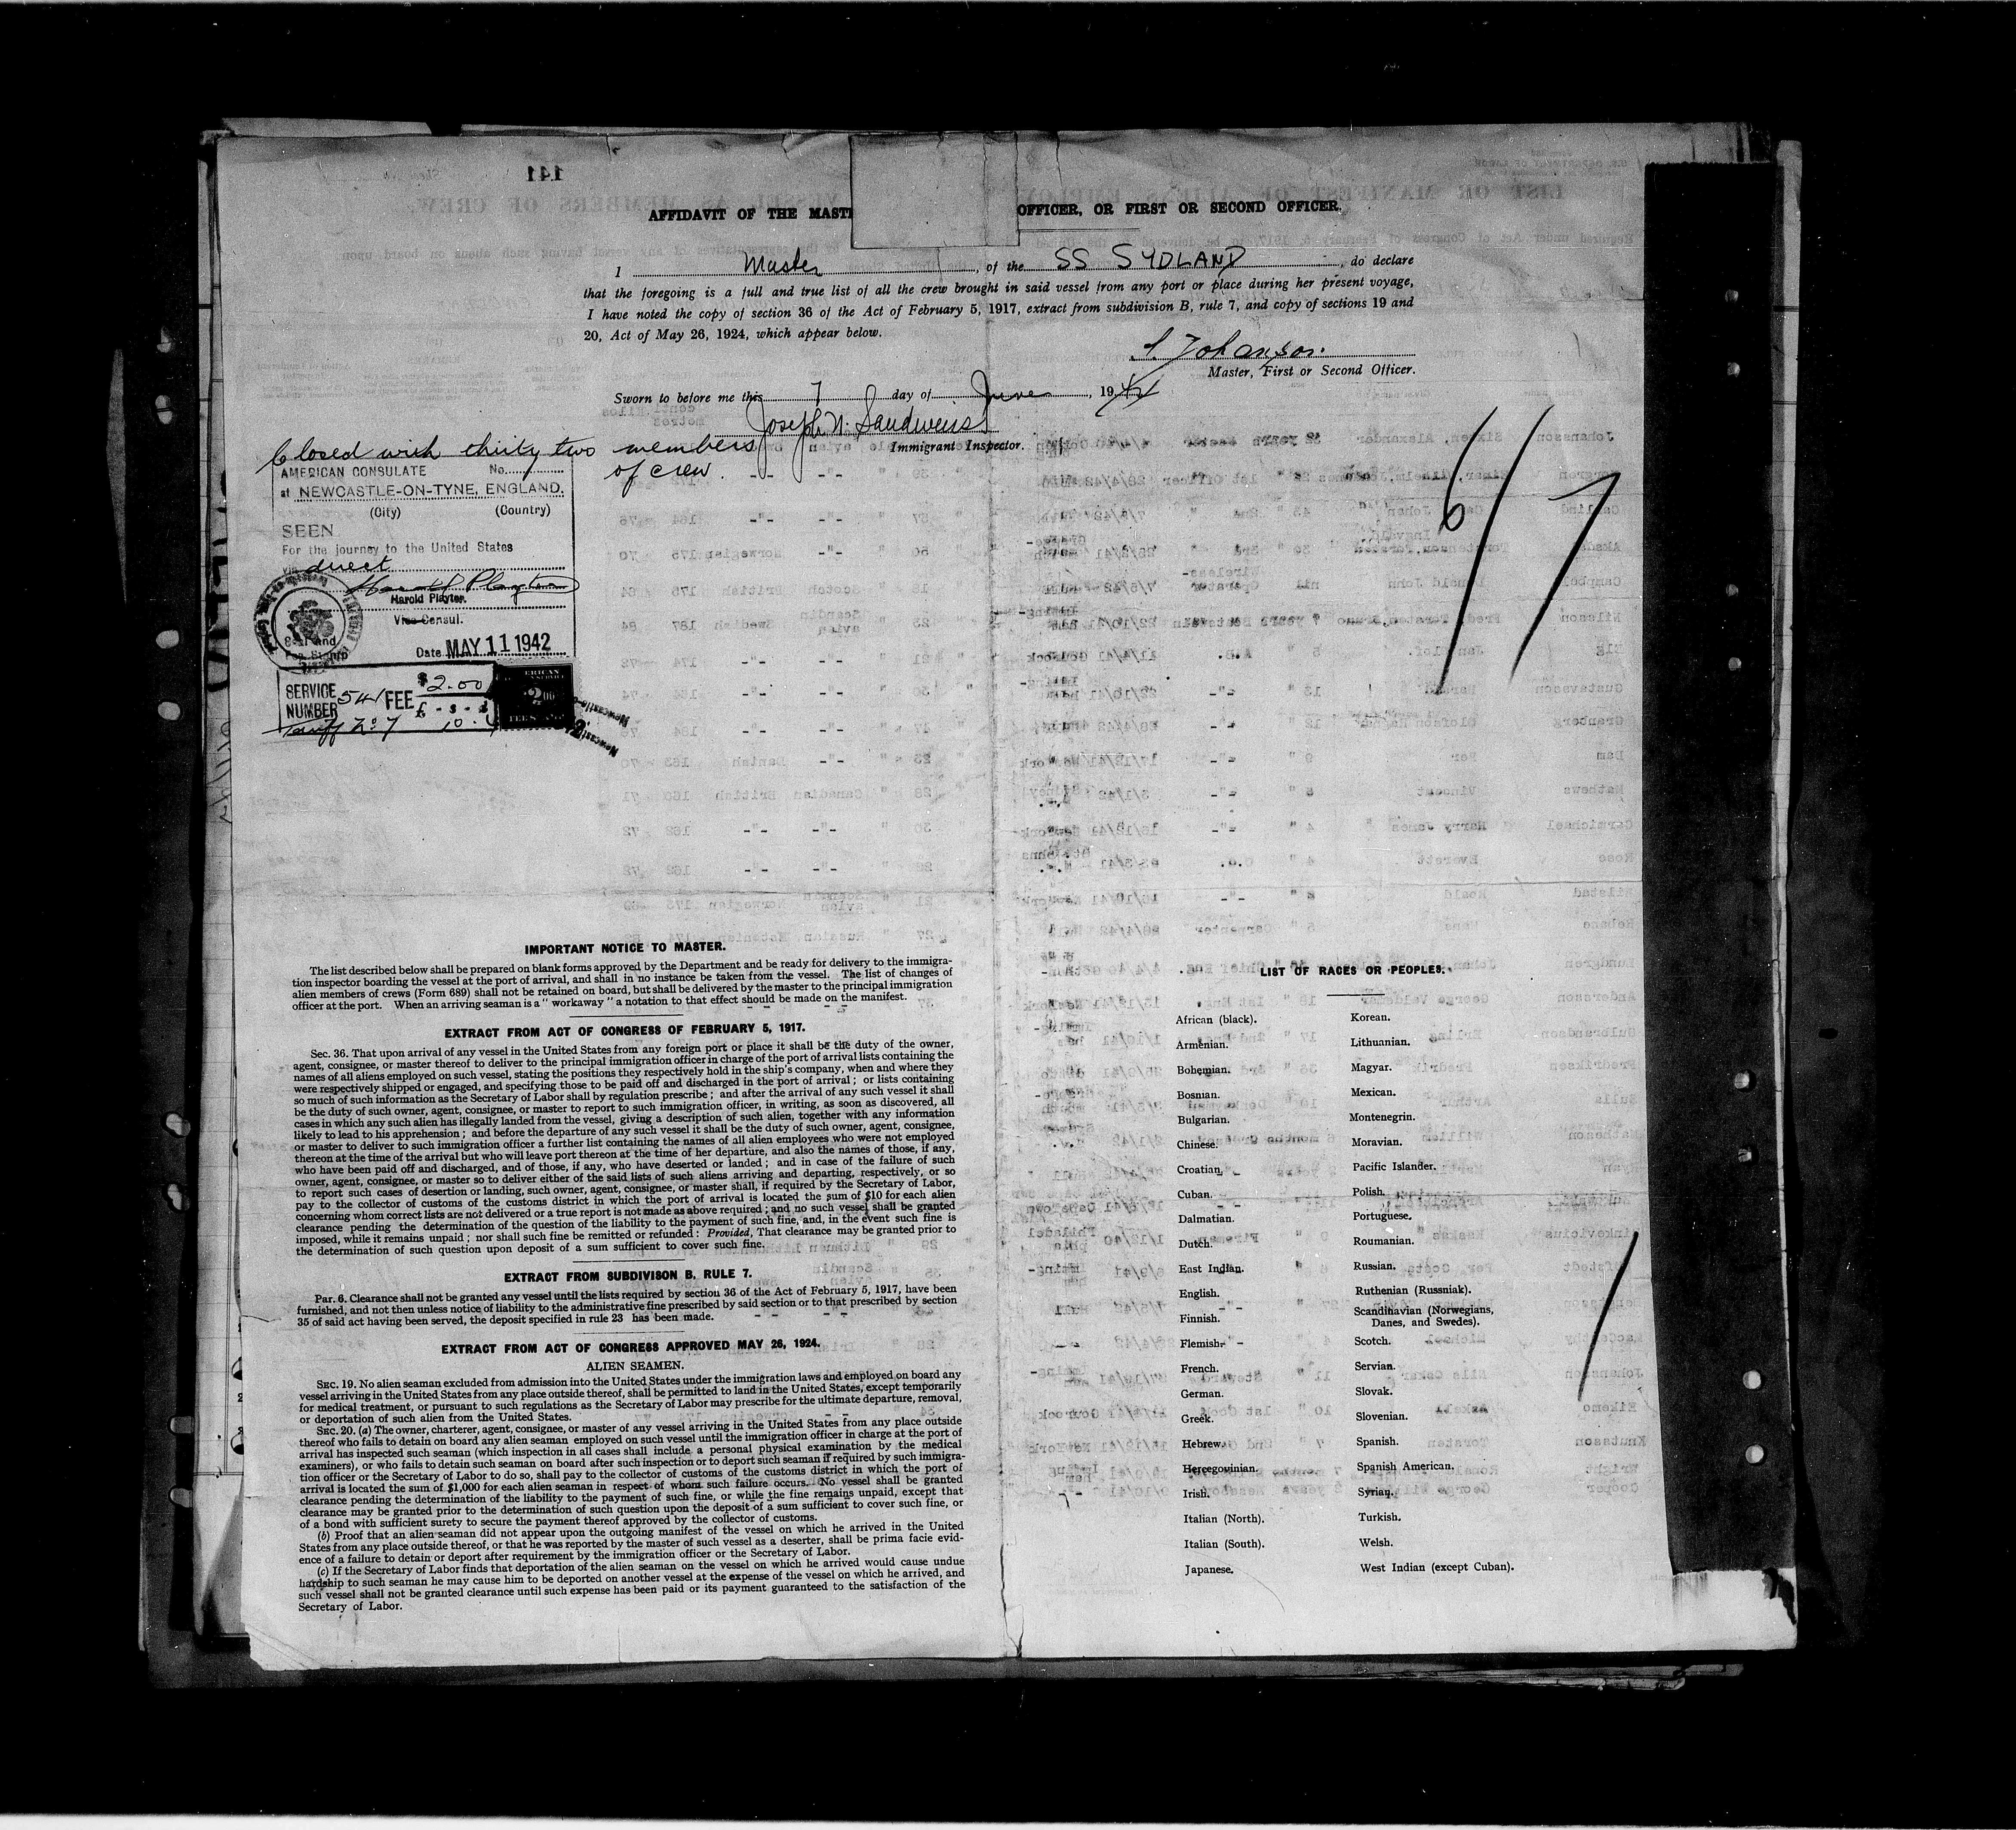 141
AFFIDAVIT OF THE MASTE OFFICER, OR FIRST OR SECOND OFFICER.
I Master, of the SS SYDLAND, do declare
that the foregoing is a full and true list of all the crew brought in said vessel from any port or place during her present voyage,
I have noted the copy of section 36 of the Act of February 5, 1917, extract from subdivision B, rule 7, and copy of sections 19 and
20, Act of May 26, 1924, which appear below.
Johansson
Master, First or Second Officer.
Sworn to before me this 7 day of June, 19
Joseph N.
Immigrant Inspector.
Closed with thirty two members
of crew.
AMERICAN CONSULATE No.
at NEWCASTLE-ON-TYNE, ENGLAND.
(City) (Country)
SEEN
For the journey to the United States
via direct
Harold Playter
Harold Playter.
Vice Consul.
Seal and
Fee Stamp
Date MAY 11 1942
SERVICE NUMBER 541 FEE $2.00
£ - s - d
Tariff No 7 10.
6/7
IMPORTANT NOTICE TO MASTER.
The list described below shall be prepared on blank forms approved by the Department and be ready for delivery to the immigra-
tion inspector boarding the vessel at the port of arrival, and shall in no instance be taken from the vessel. The list of changes of
alien members of crews (Form 689) shall not be retained on board, but shall be delivered by the master to the principal immigration
officer at the port. When an arriving seaman is a "workaway" a notation to that effect should be made on the manifest.
EXTRACT FROM ACT OF CONGRESS OF FEBRUARY 5, 1917.
Sec. 36. That upon arrival of any vessel in the United States from any foreign port or place it shall be the duty of the owner,
agent, consignee, or master thereof to deliver to the principal immigration officer in charge of the port of arrival lists containing the
names of all aliens employed on such vessel, stating the positions they respectively hold in the ship's company, when and where they
were respectively shipped or engaged, and specifying those to be paid off and discharged in the port of arrival; or lists containing
so much of such information as the Secretary of Labor shall by regulation prescribe; and after the arrival of any such vessel it shall
be the duty of such owner, agent, consignee, or master to report to such immigration officer, in writing, as soon as discovered, all
cases in which any such alien has illegally landed from the vessel, giving a description of such alien, together with any information
likely to lead to his apprehension; and before the departure of any such vessel it shall be the duty of such owner, agent, consignee,
or master to deliver to such immigration officer a further list containing the names of all alien employees who were not employed
thereon at the time of the arrival but who will leave port thereon at the time of her departure, and also the names of those, if any,
who have been paid off and discharged, and of those, if any, who have deserted or landed; and in case of the failure of such
owner, agent, consignee, or master so to deliver either of the said lists of such aliens arriving and departing, respectively, or so
to report such cases of desertion or landing, such owner, agent, consignee, or master shall, if required by the Secretary of Labor,
pay to the collector of customs of the customs district in which the port of arrival is located the sum of $10 for each alien
concerning whom correct lists are not delivered or a true report is not made as above required; and no such vessel shall be granted
clearance pending the determination of the question of the liability to the payment of such fine, and, in the event such fine is
imposed, while it remains unpaid; nor shall such fine be remitted or refunded: Provided, That clearance may be granted prior to
the determination of such question upon deposit of a sum sufficient to cover such fine.
EXTRACT FROM SUBDIVISON B, RULE 7.
Par. 6. Clearance shall not be granted any vessel until the lists required by section 36 of the Act of February 5, 1917, have been
furnished, and not then unless notice of liability to the administrative fine prescribed by said section or to that prescribed by section
35 of said act having been served, the deposit specified in rule 23 has been made.
EXTRACT FROM ACT OF CONGRESS APPROVED MAY 26, 1924.
ALIEN SEAMEN.
SEC. 19. No alien seaman excluded from admission into the United States under the immigration laws and employed on board any
vessel arriving in the United States from any place outside thereof, shall be permitted to land in the United States, except temporarily
for medical treatment, or pursuant to such regulations as the Secretary of Labor may prescribe for the ultimate departure, removal,
or deportation of such alien from the United States.
SEC. 20. (a) The owner, charterer, agent, consignee, or master of any vessel arriving in the United States from any place outside
thereof who fails to detain on board any alien seaman employed on such vessel until the immigration officer in charge at the port of
arrival has inspected such seaman (which inspection in all cases shall include a personal physical examination by the medical
examiners), or who fails to detain such seaman on board after such inspection or to deport such seaman if required by such immigra-
tion officer or the Secretary of Labor to do so, shall pay to the collector of customs of the customs district in which the port of
arrival is located the sum of $1,000 for each alien seaman in respect of whom such failure occurs. No vessel shall be granted
clearance pending the determination of the liability to the payment of such fine, or while the fine remains unpaid, except that
clearance may be granted prior to the determination of such question upon the deposit of a sum sufficient to cover such fine, or
of a bond with sufficient surety to secure the payment thereof approved by the collector of customs.
(b) Proof that an alien seaman did not appear upon the outgoing manifest of the vessel on which he arrived in the United
States from any place outside thereof, or that he was reported by the master of such vessel as a deserter, shall be prima facie evid-
ence of a failure to detain or deport after requirement by the immigration officer or the Secretary of Labor.
(c) If the Secretary of Labor finds that deportation of the alien seaman on the vessel on which he arrived would cause undue
hardship to such seaman he may cause him to be deported on another vessel at the expense of the vessel on which he arrived, and
such vessel shall not be granted clearance until such expense has been paid or its payment guaranteed to the satisfaction of the
Secretary of Labor.
LIST OF RACES OR PEOPLES.
African (black).
Armenian.
Bohemian.
Bosnian.
Bulgarian.
Chinese.
Croatian.
Cuban.
Dalmatian.
Dutch.
East Indian.
English.
Finnish.
Flemish.
French.
German.
Greek.
Hebrew.
Hercegovinian.
Irish.
Italian (North).
Italian (South).
Japanese.
Korean.
Lithuanian.
Magyar.
Mexican.
Montenegrin.
Moravian.
Pacific Islander.
Polish.
Portuguese.
Roumanian.
Russian.
Ruthenian (Russniak).
Scandinavian (Norwegians,
Danes, and Swedes).
Scotch.
Servian.
Slovak.
Slovenian.
Spanish.
Spanish American.
Syrian.
Turkish.
Welsh.
West Indian (except Cuban).